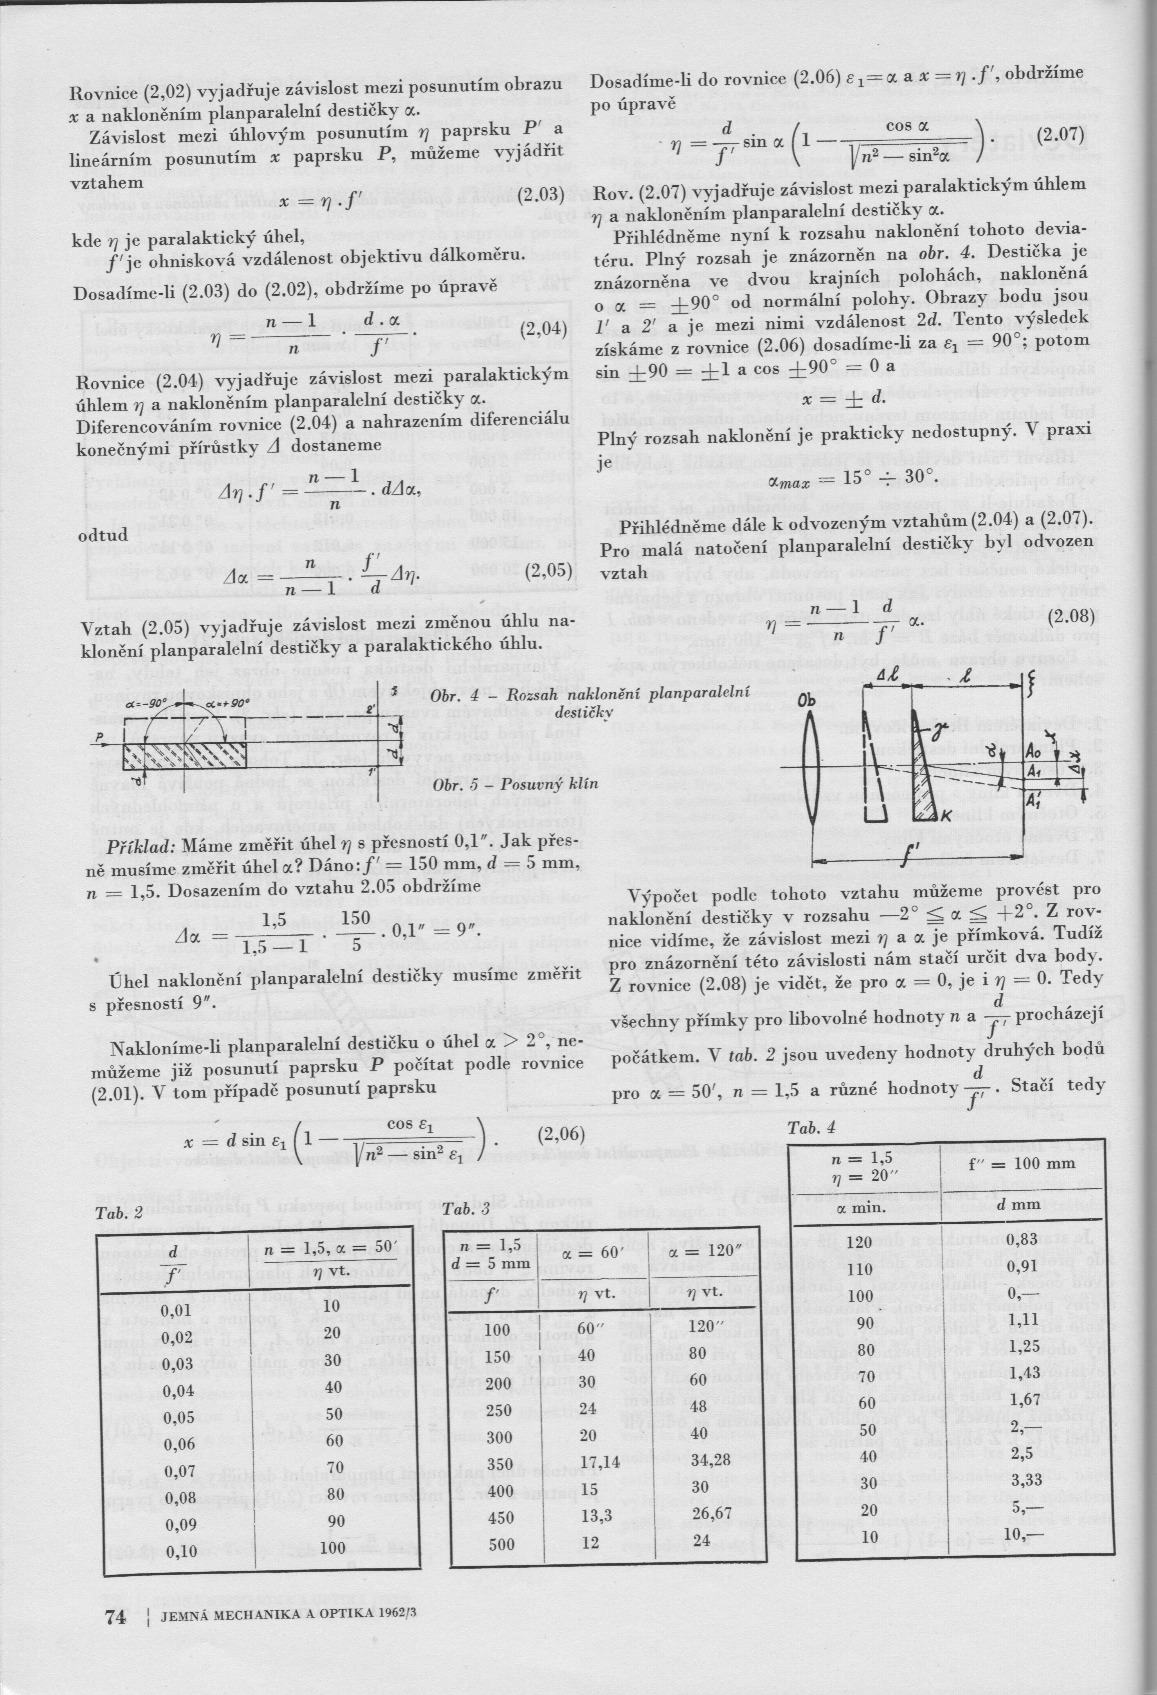 Rovnice (2,02) vyjadřuje závislost mezi posunutím obrazu
x a nakloněním planparalelní destičky α.
Závislost mezi úhlovým posunutím η paprsku P′ a
lineárním posunutím x paprsku P, můžeme vyjádřit
vztahem
x = η . f′ (2.03)
kde η je paralaktický úhel,
f′ je ohnisková vzdálenost objektivu dálkoměru.
Dosadíme-li (2.03) do (2.02), obdržíme po úpravě
η = (n — 1)/n . (d . α)/f′ . (2.04)
Rovnice (2.04) vyjadřuje závislost mezi paralaktickým
úhlem η a nakloněním planparalelní destičky α.
Diferencováním rovnice (2.04) a nahrazením diferenciálu
konečnými přírůstky Δ dostaneme
Δη . f′ = (n — 1)/n . dΔα,
odtud
Δα = n/(n — 1) . f′/d Δη. (2,05)
Vztah (2.05) vyjadřuje závislost mezi změnou úhlu na-
klonění planparalelní destičky a paralaktického úhlu.
α=-90° α=+90°
P
d
ξ
2′
d
d
1′
Obr. 4 – Rozsah naklonění planparalelní
destičky
Obr. 5 – Posuvný klín
Příklad: Máme změřit úhel η s přesností 0,1″. Jak přes-
ně musíme změřit úhel α? Dáno: f′ = 150 mm, d = 5 mm,
n = 1,5. Dosazením do vztahu 2.05 obdržíme
Δα = 1,5/(1,5 — 1) . 150/5 . 0,1″ = 9″.
Úhel naklonění planparalelní destičky musíme změřit
s přesností 9″.
Nakloníme-li planparalelní destičku o úhel α > 2°, ne-
můžeme již posunutí paprsku P počítat podle rovnice
(2.01). V tom případě posunutí paprsku
x = d sin ε₁ (1 — cos ε₁/√(n² — sin² ε₁)) . (2,06)
Tab. 2
d/f′ | n = 1,5, α = 50′
η vt.
0,01 10
0,02 20
0,03 30
0,04 40
0,05 50
0,06 60
0,07 70
0,08 80
0,09 90
0,10 100
Tab. 3
n = 1,5 | α = 60′ | α = 120″
d = 5 mm
f′ | η vt. | η vt.
100 60″ 120″
150 40 80
200 30 60
250 24 48
300 20 40
350 17,14 34,28
400 15 30
450 13,3 26,67
500 12 24
Dosadíme-li do rovnice (2.06) ε₁ = α a x = η . f′, obdržíme
po úpravě
η = d/f′ sin α (1 — cos α/√(n² — sin²α)) . (2.07)
Rov. (2.07) vyjadřuje závislost mezi paralaktickým úhlem
η a nakloněním planparalelní destičky α.
Přihlédněme nyní k rozsahu naklonění tohoto devia-
téru. Plný rozsah je znázorněn na obr. 4. Destička je
znázorněna ve dvou krajních polohách, nakloněná
o α = ±90° od normální polohy. Obrazy bodu jsou
1′ a 2′ a je mezi nimi vzdálenost 2d. Tento výsledek
získáme z rovnice (2.06) dosadíme-li za ε₁ = 90°; potom
sin ±90 = ±1 a cos ±90° = 0 a
x = ± d.
Plný rozsah naklonění je prakticky nedostupný. V praxi
je
αmax = 15° ÷ 30°.
Přihlédněme dále k odvozeným vztahům (2.04) a (2.07).
Pro malá natočení planparalelní destičky byl odvozen
vztah
η = (n — 1)/n d/f′ α. (2.08)
Ob
Δℓ
ℓ
ξ
γ
α
A₀
A₁
A₁′
x
Δx
K
f′
Výpočet podle tohoto vztahu můžeme provést pro
naklonění destičky v rozsahu —2° ≦ α ≦ +2°. Z rov-
nice vidíme, že závislost mezi η a α je přímková. Tudíž
pro znázornění této závislosti nám stačí určit dva body.
Z rovnice (2.08) je vidět, že pro α = 0, je i η = 0. Tedy
všechny přímky pro libovolné hodnoty n a d/f′ procházejí
počátkem. V tab. 2 jsou uvedeny hodnoty druhých bodů
pro α = 50′, n = 1,5 a různé hodnoty d/f′ . Stačí tedy
Tab. 4
n = 1,5 | f″ = 100 mm
η = 20″
α min. | d mm
120 0,83
110 0,91
100 0,—
90 1,11
80 1,25
70 1,43
60 1,67
50 2,—
40 2,5
30 3,33
20 5,—
10 10,—
74 | JEMNÁ MECHANIKA A OPTIKA 1962/3